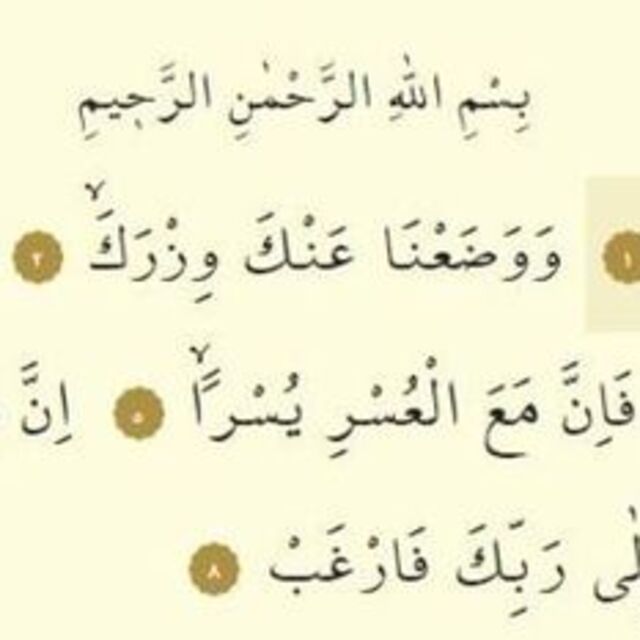 بِسْمِ اللهِ الرَّحْمٰنِ الرَّحٖيمِ
١ وَوَضَعْنَا عَنْكَ وِزْرَكَۙ ٢
فَاِنَّ مَعَ الْعُسْرِ يُسْراًۙ ٥ اِنَّ
رَبِّكَ فَارْغَبْ ٨